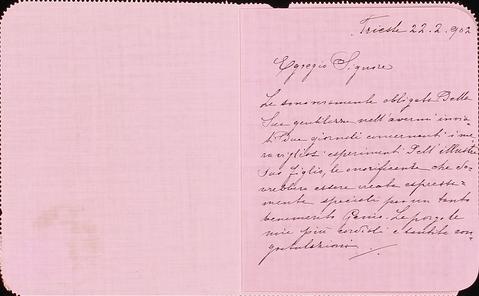 Trieste 22.2.902
Egregio Signore
Le sono veramente obligato della
Sua gentilezza nell'avermi invia-
ti due giornali concernenti i me-
ravigliosi esperimenti dell'illustre
Suo figlio, le onorificenze che do-
vrebbero essere create espressa-
mente speciali per un tanto
benemerito Genio. Le porgo le
mie più cordiali e sentite con-
gratulazioni